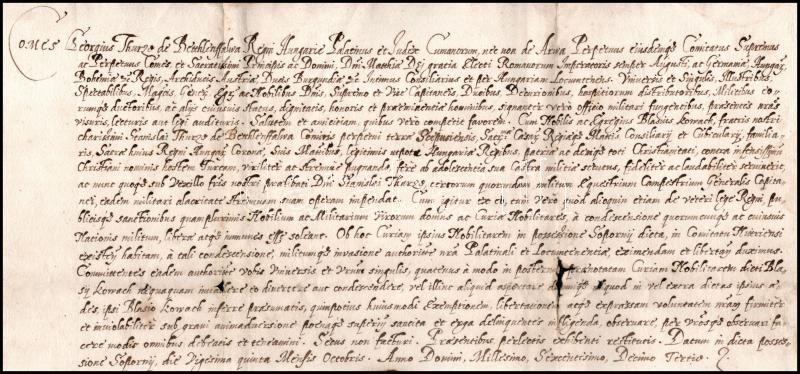 Comes Georgius Thurzo de Bethlenffalwa Regni Hungariæ Palatinus et Judex Cumanorum, nec non de Arwa Perpetuus eiusdemq; Comitatus Supremus
ac Perpetuus Comes, et Sacratissimi Principis ac Domini, Dni Matthiæ Dei gratia Electi Romanorum Imperatoris semper Augusti, ac Germaniæ, Hungariæ,
Bohemiæ &c Regis, Archiducis Austriæ Ducis Burgundiæ &c Intimus Consiliarius et per Hungariam Locumtenens. Universis et Singulis, Illustribus,
Spectabilibus, Magcis, Egr: ac Nobilibus Dnis, Supremo et Vice Capitaneis, Ducibus, Decurionibus, hospitiorum distributoribus, Militibus
ductoribus, ac alijs cuiusvis status, dignitatis, honoris et præeminentiæ hominibus, signanter vero officio militari fungentibus, præsentes nras
visuris, lecturis aut legi audituris. Salutem et amicitiam, quibus vero competit favorem. Cum Nobilis ac Egregius Blasius Kowach, fratris nostri
charissimi Stanislai Thurzo de Bethlenffalwa Comitis perpetui terræ Scepusiensis, Sacrae Caes: Regiæq; Mattis Consiliarij et Cubicularij, familia-
ris, Sacræ huius Regni Hungariæ Coronæ, Suis Mattibus, legitimis utpote Hungariæ Regibus, patriæ ac deniq; toti Christianitati, contra infensissimum
Christiani nominis hostem Turcam, viriliter ac strenue pugnando, fere ab adolescentia sua castra militiæ secutus, fideliter ac laudabiliter servierit,
ac nunc quoq; sub Vexillo fris nostri præfati Dni Stanislai Thurzo, certorum quorundam militum Equestrium Campestrium Generalis Capita-
nei, eadem militari alacritate strenuam suam operam impendat. Cum igitur ex eo, tum vero quod alioquin etiam de veteri lege Regni, pu-
blicisq; sanctionibus quamplurimis Nobilium ac Militarium Virorum domus ac Curiæ Nobilitares, à condescensione quorumcunq; ac cuiusvis
Nationis militum, liberæ atq; immunes esse soleant. Ob hoc Curiam ipsius Nobilitarem in possessione Soporny dicta, in Comitatu Nitriensi
existen: habitam, à tali condescensione, militumq; invasione authoritate nra Palatinali et Locumtenentia, eximendam et libertan: duximus.
Committentes eadem authoritate vobis Universis et Vrum singulis, quatenus à modo in posterum prænotatam Curiam Nobilitarem dicti Bla-
sij Kowach nequaquam invadere eo divertere aut condescendere, vel illinc aliquid asportare quod in vel extra dictas ipsius æ-
des, ipsi Blasio Kowach inferre præsumatis, quinpotius huiusmodi Exemptionem, libertationem atq; expressam voluntatem nram firmiter
et inviolabiliter sub gravi animadversione poenaq; superinde sancita et erga delinquentes infligenda, observare, per Vrosq; observari fa-
cere modis omnibus debeatis et teneamini. Secus non facturi. Præsentibus perlectis exhibenti restitutis. Datum in dicta posses-
sione Soporny, die Vigesima quinta Mensis Octobris. Anno Domini, Millesimo, Sexcentesimo, Decimo Tertio.